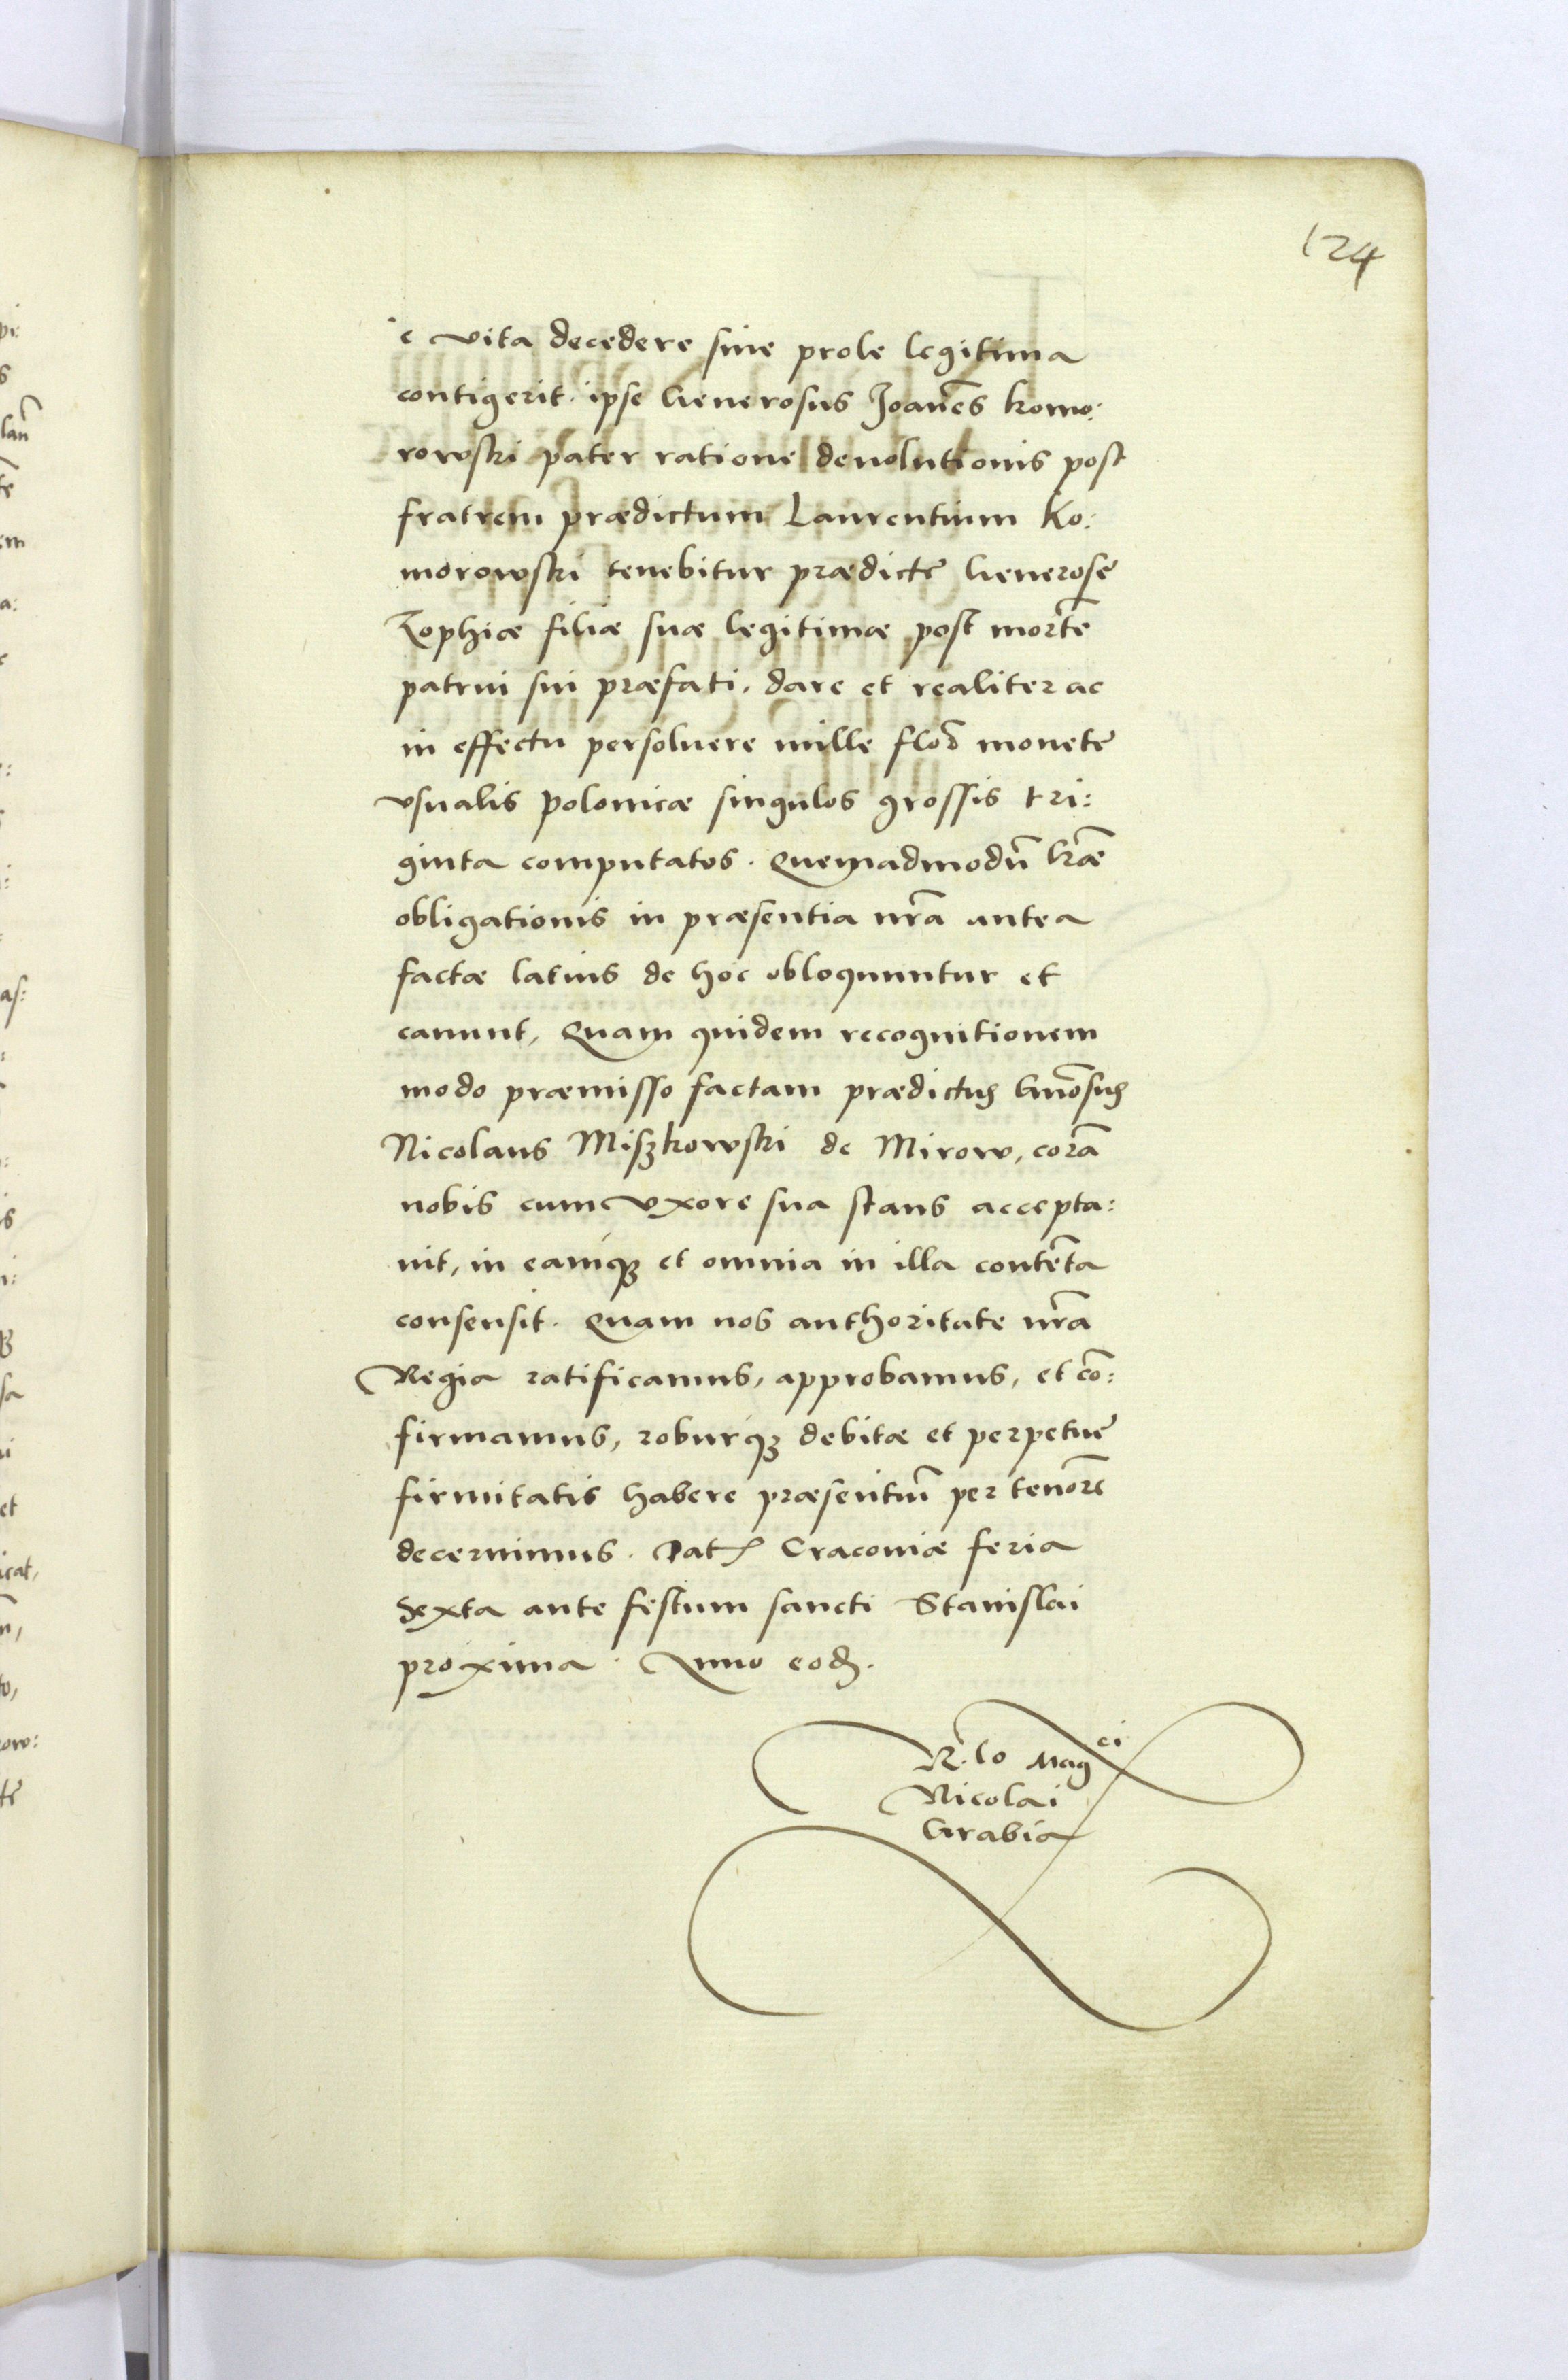 124
e vita decedere sine prole legitima
contigerit. ipse Generosus Joañes Komo:
rowski pater ratione deuolutionis post
fratrem prædictum Laurentium Ko:
morowski tenebitur prædictę Generosę
Zophiæ filiæ suæ legitimæ post mortẽ
patrui sui præfati, dare et realiter ac
in effectu persoluere mille flor̃ monetę
vsualis polonicæ singulos grossis tri:
ginta computatos. Quemadmodũ lr̃æ
obligationis in præsentia nr̃a antea
factæ latius de hoc obloquuntur et
canunt, Quam quidem recognitionem
modo præmisso factam prædictus Gnõsus
Nicolaus Miszkowski de Mirow, corã
nobis cum vxore sua stans accepta:
uit, in eamq₃ et omnia in illa contẽta
consensit. Quam nos authoritate nr̃a
Regia ratificamus, approbamus, et cõ:
firmamus, roburq₃ debitæ et perpetuę
firmitatis habere præsentiũ per tenorẽ
decernimus. Dat̃ Cracoviæ feria
Sexta ante festum sancti Stanislai
proxima. Anno eod̃.
R. lo Mag^ci
Nicolai
Grabia